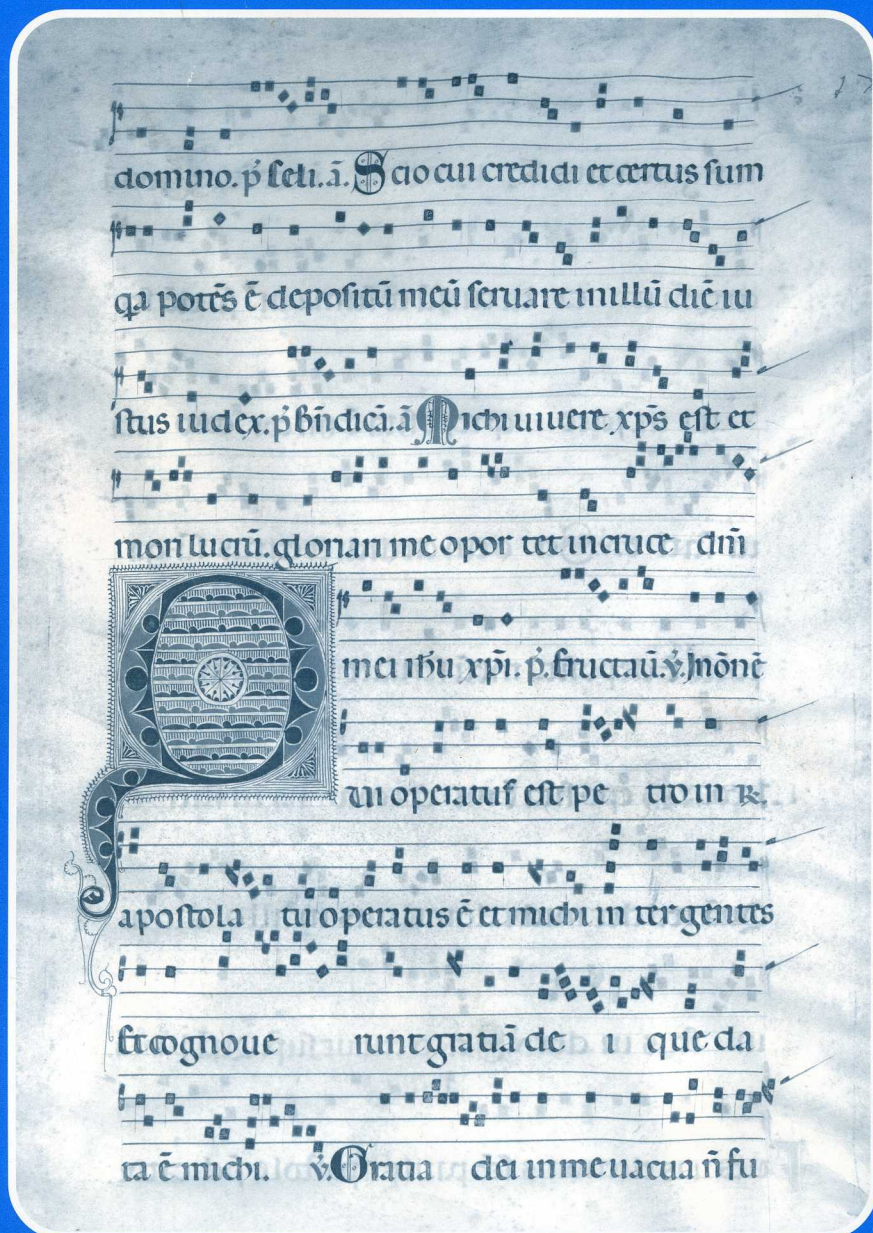 domino. p̄ Celi. ā. Scio cui credidi et certus sum
qa potēs ē depositū meū seruare in illū diē iu
stus iudex. p̄ bn̄dicā. ā Michi uiuere xp̄s est et
mori lucrū. gloriari me opor tet in cruce dn̄i
mei ihu xp̄i. p̄. Eructaū. v̄. In ōnē
Qui operatus est pe tro in R.
apostola tu operatus ē et michi in ter gentes
Et cognoue runt gratiā de i que da
ta ē michi. v̄. Gratia dei in me uacua n̄ fu